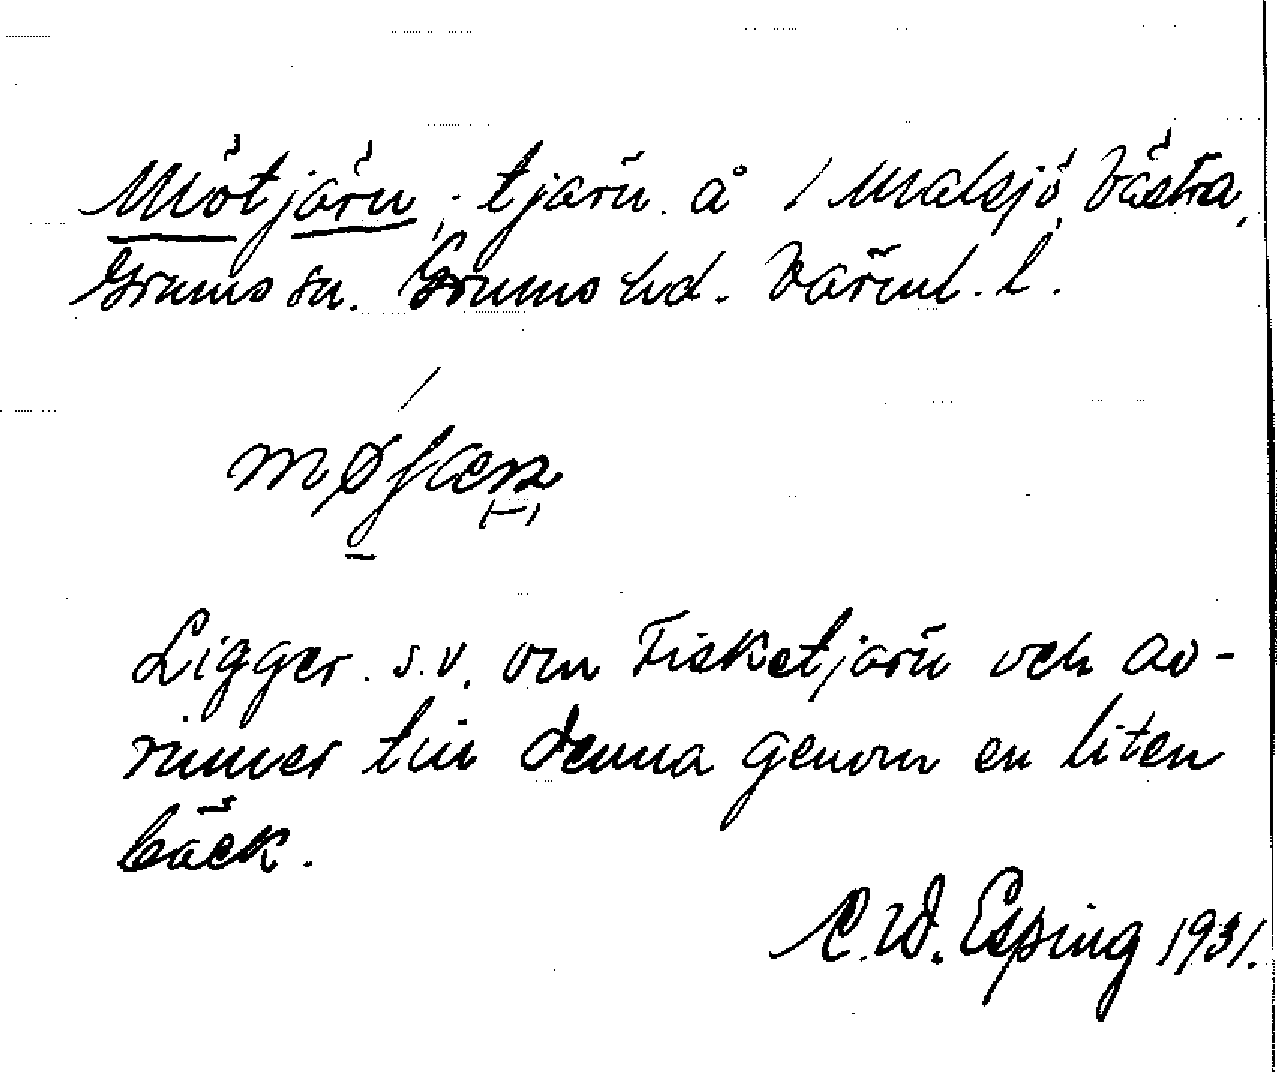 Mötjärn, tjärn å / Malsjö, Västra,
Grums sn. Grums hd. Värml. l.
møʃæɳ
Ligger s.v. om Fisketjärn och av-
rinner till denna genom en liten
bäck.
C.W. Esping 1931.